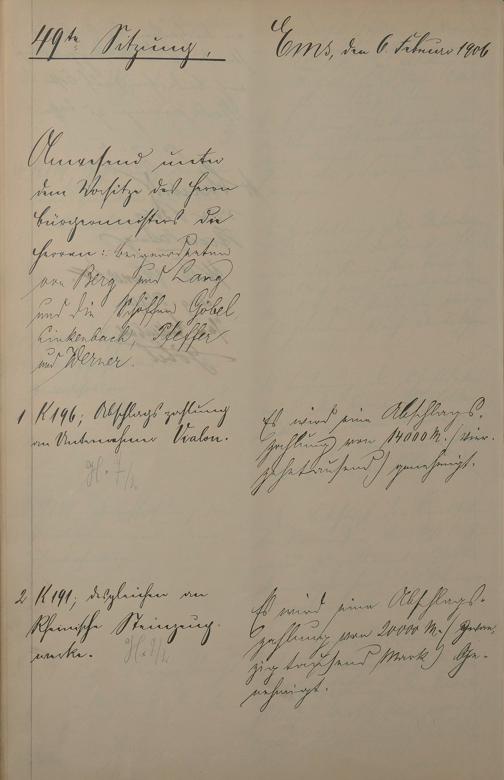 49te Sitzung.
Ems, den 6. Februar 1906
Anwesend unter
dem Vorsitze des Herrn
Bürgermeisters die
Herren: Beigeordneten
von Berg und Lang
und die Schöffen Göbel
Linkenbach, Pfeffer
und Werner.
1 K 196; Abschlagszahlung
an Unternehmer Valon.
Es wird eine Abschlags-
zahlung von 14000 M. (vier-
zehntausend) genehmigt.
2 K 191; desgleichen an
Rheinische Steinzeug-
werke.
Es wird eine Abschlags-
zahlung von 20000 M. (zwan-
zigtausend Mark) ge-
nehmigt.